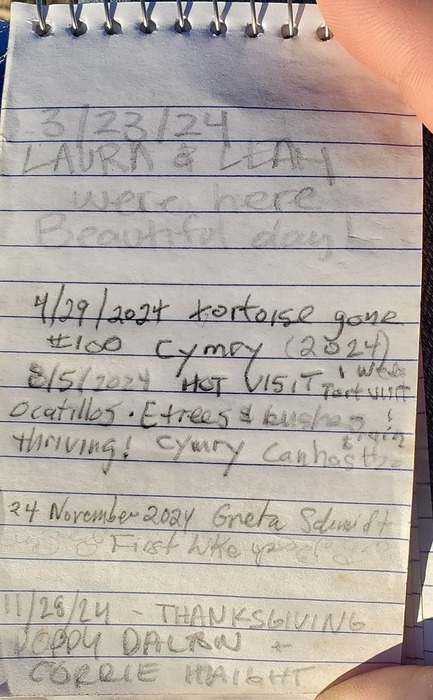 3/23/24
LAURA & LEAH
were here
Beautiful day!
4/29/2024 tortoise gone
#100 Cymry (2024)
8/5/2024 HOT VISIT
Ocatillos. E trees & bushes
thriving! Cymry
24 November 2024 Greta Schmidt
First hike up
11/28/24 - THANKSGIVING
+
CORRIE HAIGHT